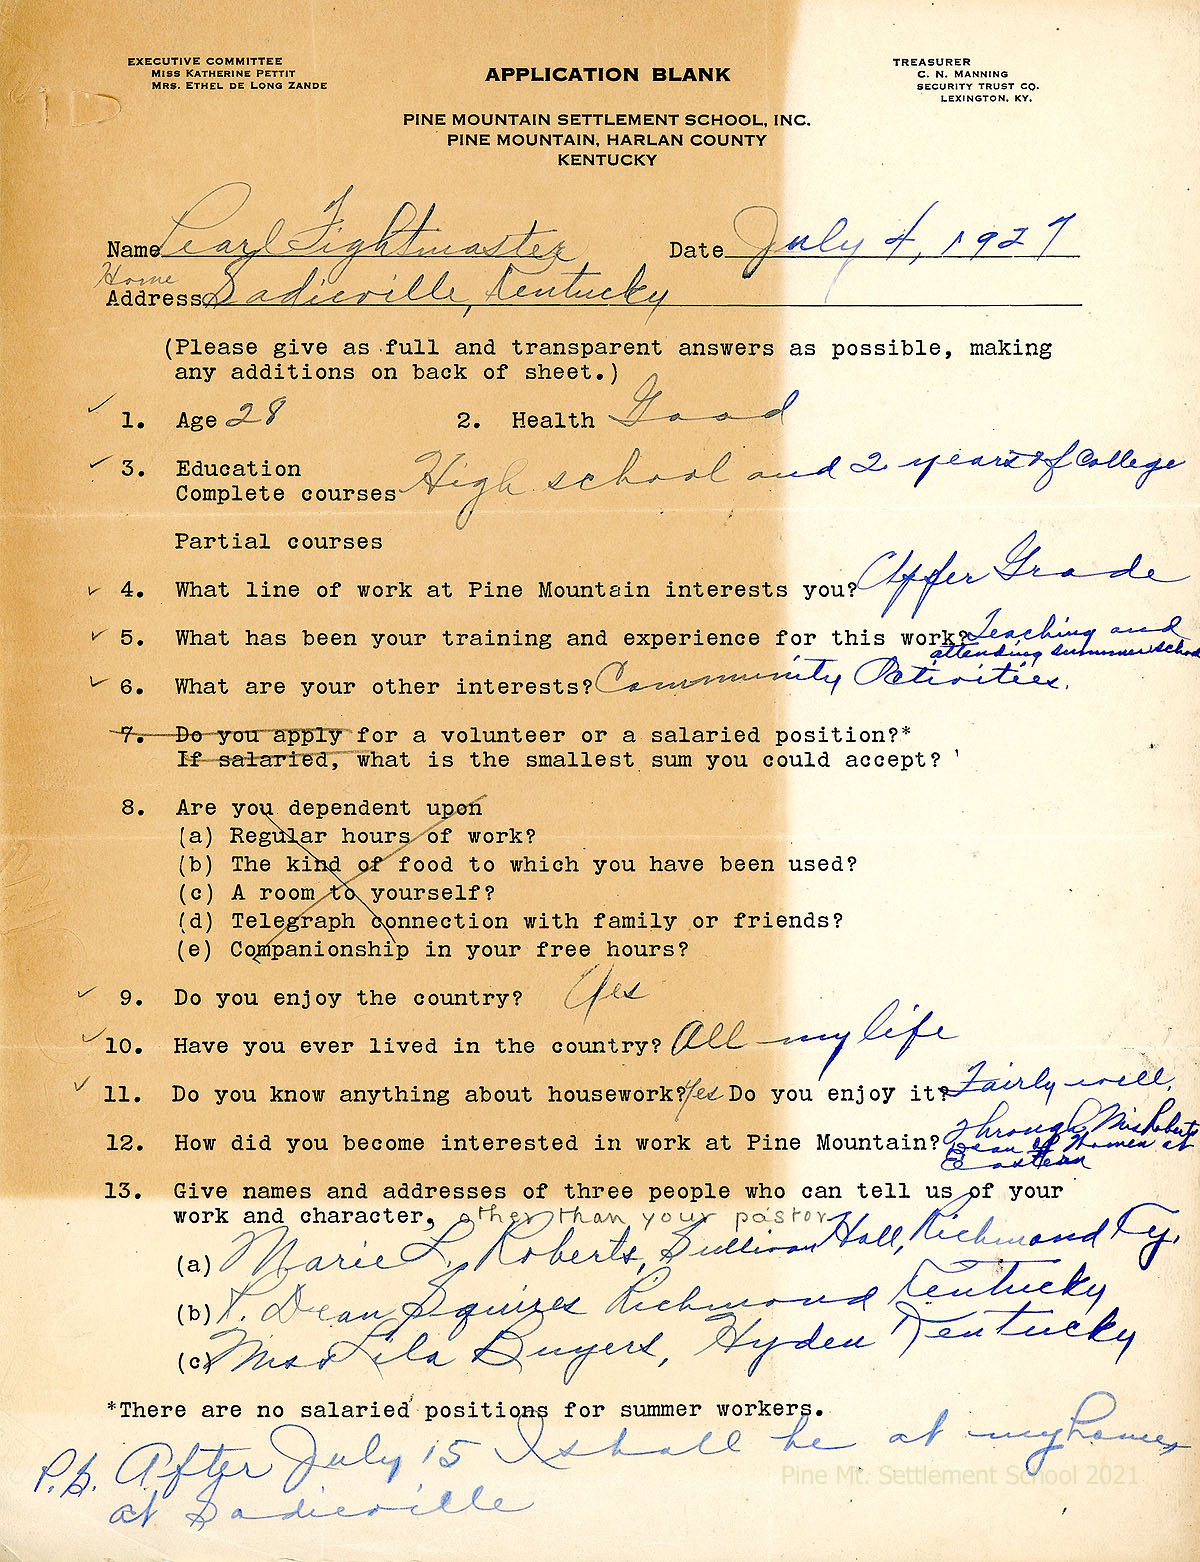 EXECUTIVE COMMITTEE
MISS KATHERINE PETTIT
MRS. ETHEL DE LONG ZANDE
APPLICATION BLANK
TREASURER
C. N. MANNING
SECURITY TRUST CO.
LEXINGTON, KY.
PINE MOUNTAIN SETTLEMENT SCHOOL, INC.
PINE MOUNTAIN, HARLAN COUNTY
KENTUCKY
Name Pearl Fightmaster Date July 4, 1927
Home
Address Sadieville, Kentucky
(Please give as full and transparent answers as possible, making
any additions on back of sheet.)
1. Age 28 2. Health Good
3. Education
Complete courses High school and 2 years of College
Partial courses
4. What line of work at Pine Mountain interests you? Upper Grade
5. What has been your training and experience for this work? Teaching and
attending summer school
6. What are your other interests? Community Activities.
7. Do you apply for a volunteer or a salaried position?*
If salaried, what is the smallest sum you could accept?
8. Are you dependent upon
(a) Regular hours of work?
(b) The kind of food to which you have been used?
(c) A room to yourself?
(d) Telegraph connection with family or friends?
(e) Companionship in your free hours?
9. Do you enjoy the country? Yes
10. Have you ever lived in the country? All my life
11. Do you know anything about housework? Yes Do you enjoy it? Fairly well.
12. How did you become interested in work at Pine Mountain? Through Miss Roberts
Dean of Women at
Eastern
13. Give names and addresses of three people who can tell us of your
work and character, other than your pastor
(a) Marie L. Roberts, Sullivan Hall, Richmond Ky.
(b) Dean Squires Richmond Kentucky
(c) Miss Lila Buyers, Hyden Kentucky
*There are no salaried positions for summer workers.
P.S. After July 15 I shall be at my home,
at Sadieville
Pine Mt. Settlement School 2021